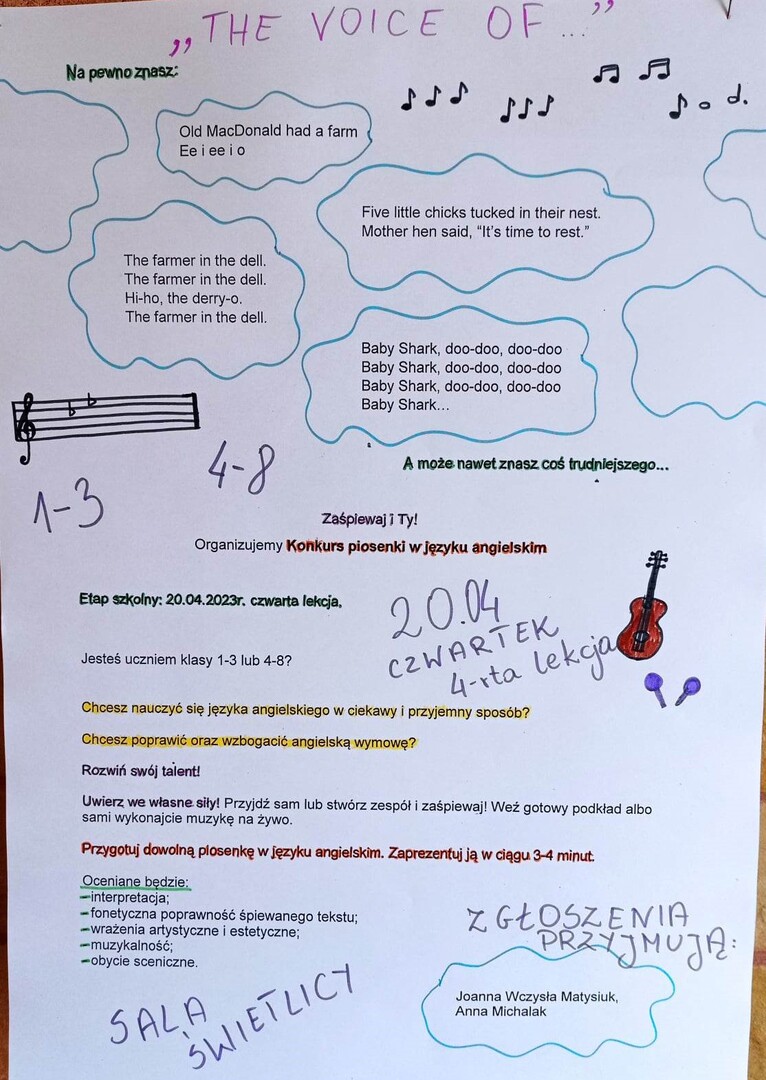 „THE VOICE OF..."
Na pewno znasz:
Old MacDonald had a farm
Ee i ee i o
Five little chicks tucked in their nest.
Mother hen said, “It’s time to rest.”
The farmer in the dell.
The farmer in the dell.
Hi-ho, the derry-o.
The farmer in the dell.
Baby Shark, doo-doo, doo-doo
Baby Shark, doo-doo, doo-doo
Baby Shark, doo-doo, doo-doo
Baby Shark...
1-3
4-8
A może nawet znasz coś trudniejszego...
Zaśpiewaj i Ty!
Organizujemy Konkurs piosenki w języku angielskim
Etap szkolny: 20.04.2023r. czwarta lekcja.
20.04
CZWARTEK
4-rta lekcja
Jesteś uczniem klasy 1-3 lub 4-8?
Chcesz nauczyć się języka angielskiego w ciekawy i przyjemny sposób?
Chcesz poprawić oraz wzbogacić angielską wymowę?
Rozwiń swój talent!
Uwierz we własne siły! Przyjdź sam lub stwórz zespół i zaśpiewaj! Weź gotowy podkład albo
sami wykonajcie muzykę na żywo.
Przygotuj dowolną piosenkę w języku angielskim. Zaprezentuj ją w ciągu 3-4 minut.
Oceniane będzie:
-interpretacja;
-fonetyczna poprawność śpiewanego tekstu;
-wrażenia artystyczne i estetyczne;
-muzykalność;
-obycie sceniczne.
ZGŁOSZENIA
PRZYJMUJĄ:
Joanna Wczysła Matysiuk,
Anna Michalak
SALA
ŚWIETLICY